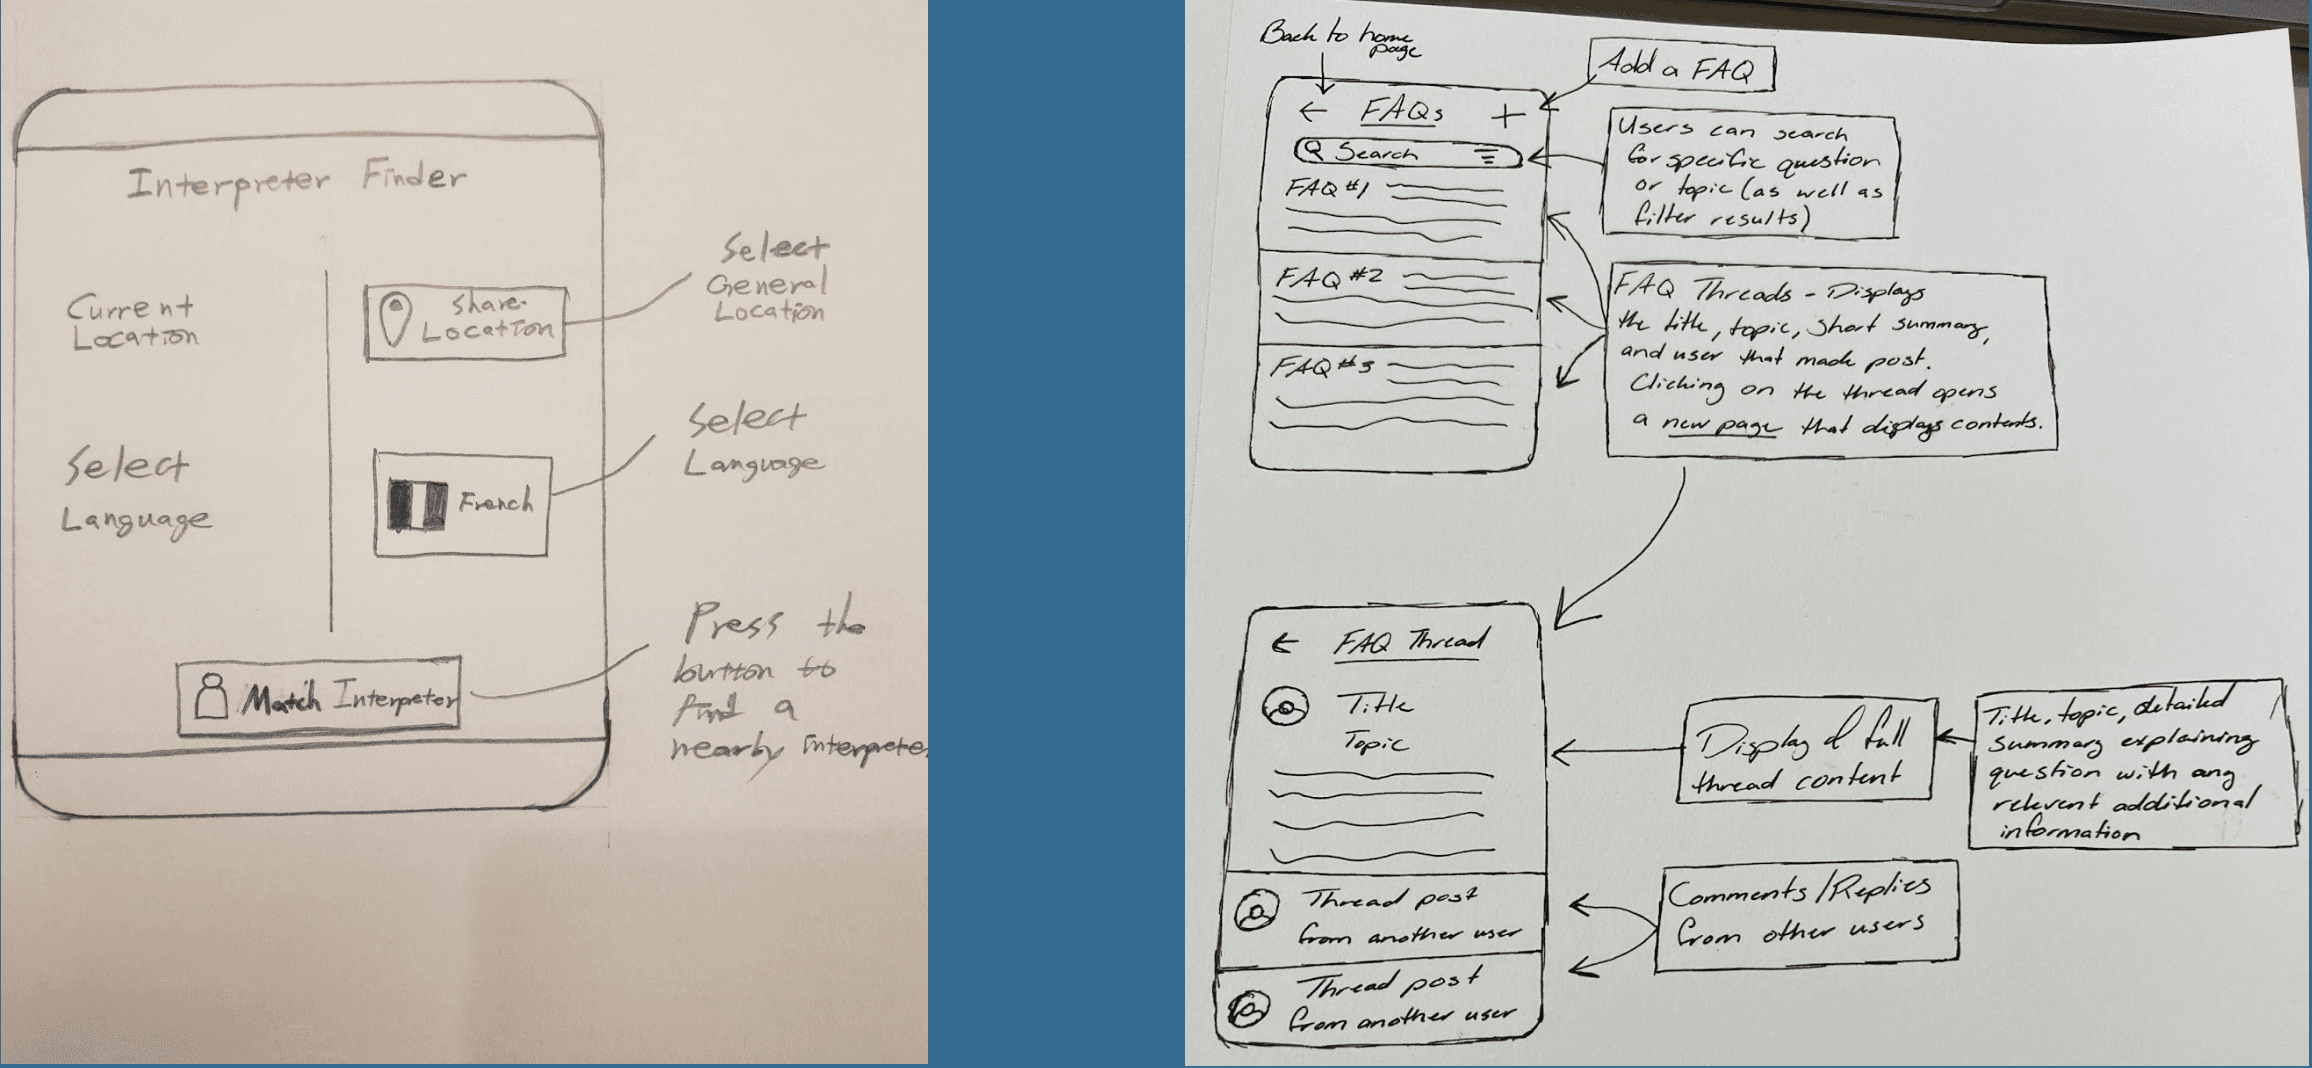 Interpreter Finder
Current
Location
Share
Location
Select
General
Location
Select
Language
French
Select
Language
Match Interpeter
Press the
button to
find a
nearby interpete
Back to home
page
Add a FAQ
← FAQs +
Search
Users can search
for specific question
or topic (as well as
filter results)
FAQ #1
FAQ #2
FAQ #3
FAQ Threads - Displays
the title, topic, short summary,
and user that made post.
Clicking on the thread opens
a new page that displays contents.
← FAQ Thread
Title
Topic
Display of full
thread content
Title, topic, detailed
summary explaining
question with any
relevent additional
information
Thread post
from another user
Thread post
from another user
Comments/Replies
from other users